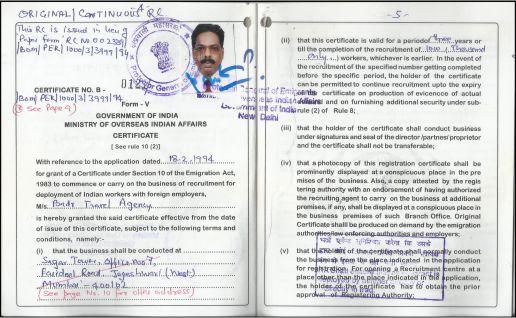 ORIGINAL / CONTINUOUS RC
This RC is issued in lieu of
Paper form RC No 002399
/Bom/PER/1000/3/3999/94
CERTIFICATE NO. B -
/Bom/PER/1000/3/3999/94
(See Page 9)
Form - V
GOVERNMENT OF INDIA
MINISTRY OF OVERSEAS INDIAN AFFAIRS
CERTIFICATE
[ See rule 10 (2)]
With reference to the application dated 18-2-1994
for grant of a Certificate under Section 10 of the Emigration Act,
1983 to commence or carry on the business of recruitment for
deployment of Indian workers with foreign employers,
M/s. Badr Travel Agency
is hereby granted the said certificate effective from the date
of issue of this certificate, subject to the following terms and
conditions, namely:-
(i) that the business shall be conducted at
Sagar Tower, Office No. 7,
Faridea Road Jogeshwari (West)
Mumbai - 400102
(See page No. 10 for office address)
- 5 -
(ii) that this certificate is valid for a period of three years or
till the completion of the recruitment of 1000 (Thousand
only) workers, whichever is earlier. In the event of
the recruitment of the specified number getting completed
before the specific period, the holder of the certificate
can be permitted to continue recruitment upto the expiry
of the certificate on production of evicence of actual
and on furnishing additional security under sub-
rule (2) of Rule 8;
General of Emigrants
Overseas Indian Affairs
Government of India
New Delhi
(iii) that the holder of the certificate shall conduct business
under signatures and seal of the director /partnes/proprietor
and the certificate shall not be transferable;
(iv) that a photocopy of this registration certificate shall be
prominently displayed at a conspicuous place in the pre
mises of the business. Also, a copy attested by the regis
tering authority with an endorsement of having authorized
the recruiting agent to carry on the business at additional
premises, if any, shall be displayed at a conspicuous place in
the business premises of such Branch Office. Original
Certificate shall be produced on demand by the emigration
authorities/law enforcing authorities and employers;
(v) that the holder of the certificate shall normally conduct
the business from the place indicated in the application
for registration. For opening a Recruitment centre at a
place other than the place indicated in the application,
the holder of the certificate has to obtain the prior
approval of Registering Authority;